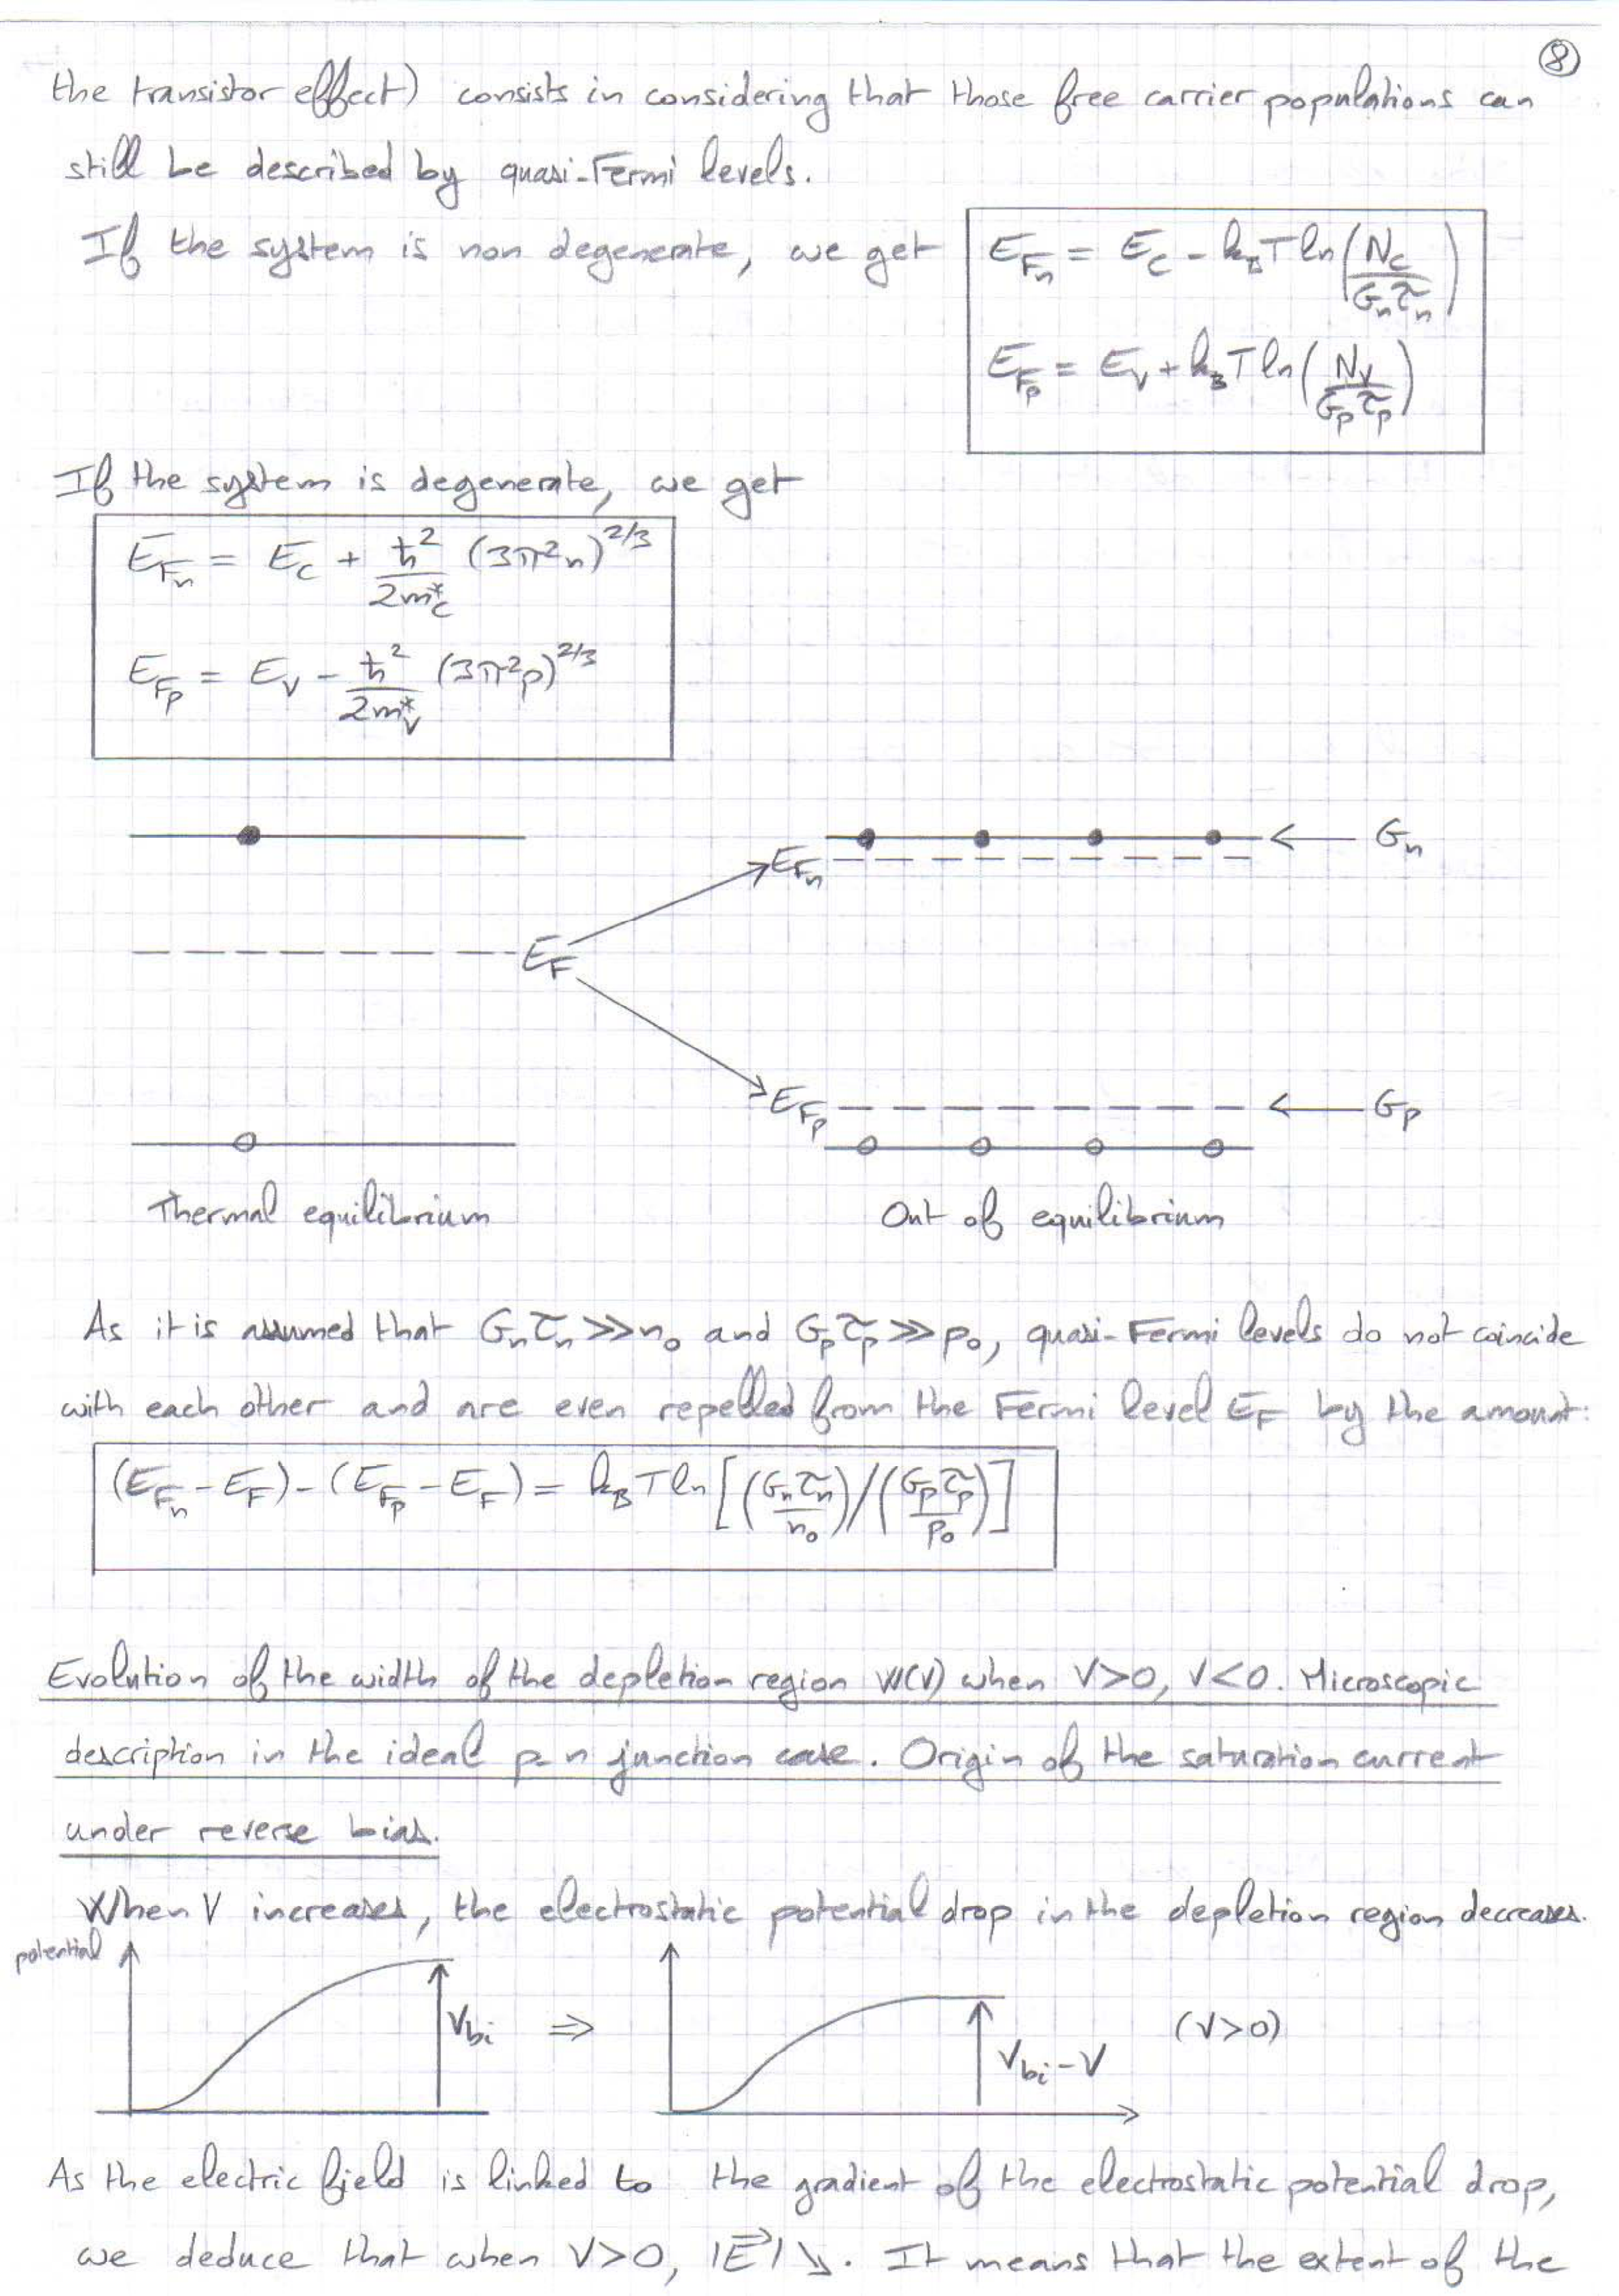 8
the transistor effect) consists in considering that those free carrier populations can
still be described by quasi-Fermi levels.
If the system is non degenerate, we get
E_Fn = E_C - k_B T ln(N_C / G_n τ_n)
E_Fp = E_V + k_B T ln(N_V / G_p τ_p)
If the system is degenerate, we get
E_Fn = E_C + ħ²/2m*_C (3π²n)^2/3
E_Fp = E_V - ħ²/2m*_V (3π²p)^2/3
E_Fn ← G_n
E_F
E_Fp ← G_p
Thermal equilibrium Out of equilibrium
As it is assumed that G_n τ_n >> n_0 and G_p τ_p >> p_0, quasi-Fermi levels do not coincide
with each other and are even repelled from the Fermi level E_F by the amount:
(E_Fn - E_F) - (E_Fp - E_F) = k_B T ln[(G_n τ_n / n_0)/(G_p τ_p / p_0)]
Evolution of the width of the depletion region W(V) when V>0, V<0. Microscopic
description in the ideal p-n junction case. Origin of the saturation current
under reverse bias.
When V increases, the electrostatic potential drop in the depletion region decreases.
potential
V_bi ⇒ V_bi - V (V>0)
As the electric field is linked to the gradient of the electrostatic potential drop,
we deduce that when V>0, |E⃗| ↘. It means that the extent of the